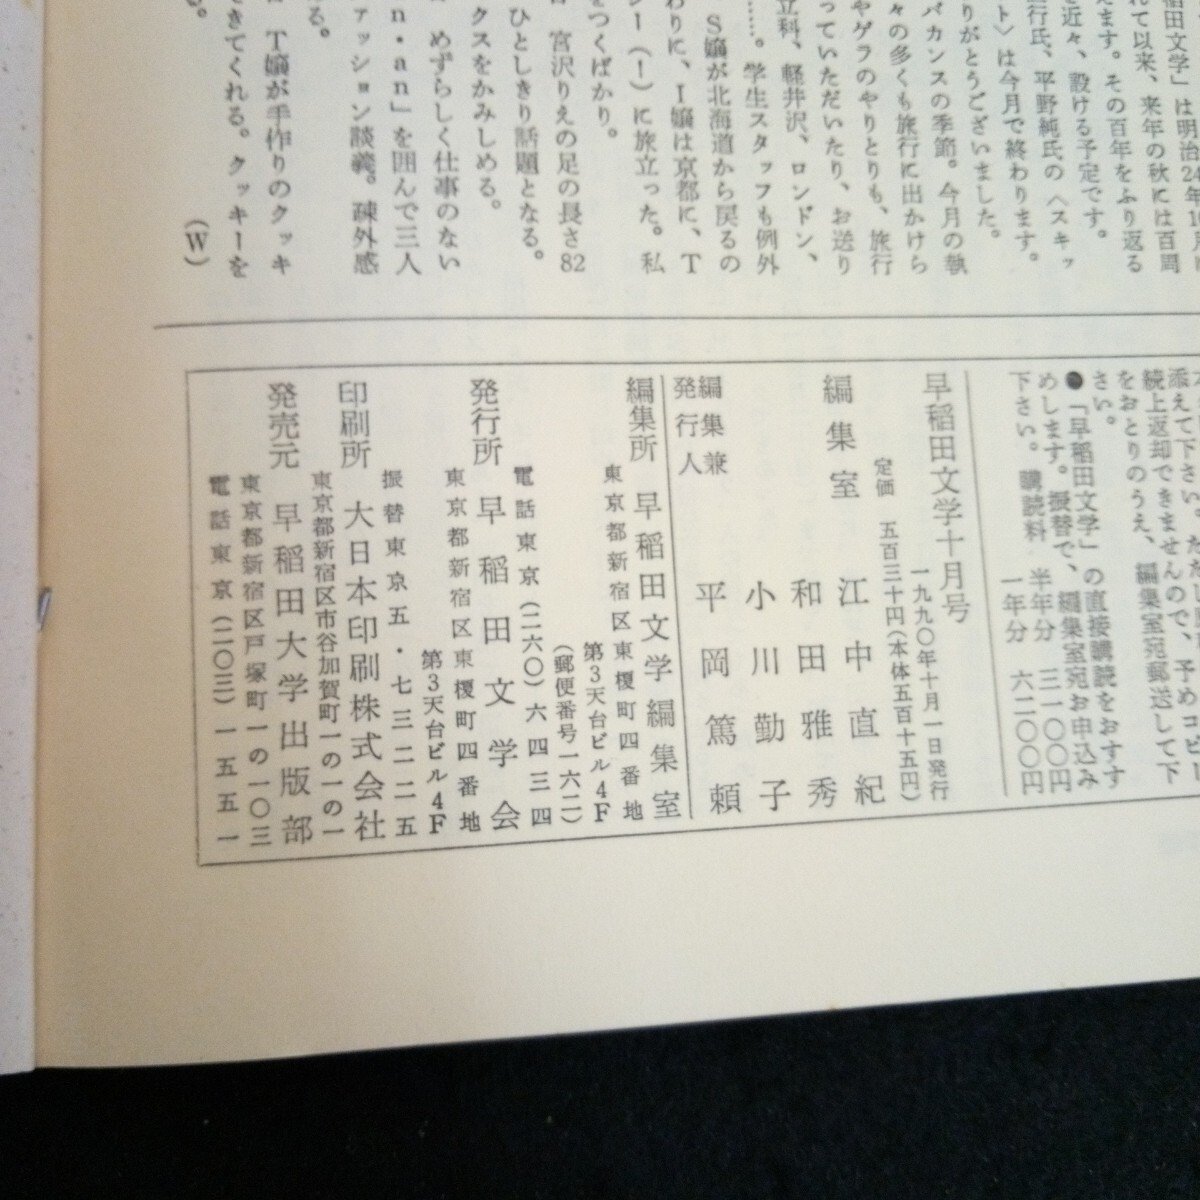 稲田文学」は明治24年1
れて以来、来年の秋には百周
えます。その百年をふり返る
を近々、設ける予定です。
行氏、平野純氏の〈スキッ
ト〉は今月で終わります。
りがとうございました。
バカンスの季節。今月の執
々の多くも旅行に出かけら
やゲラのやりとりも、旅行
っていただいたり、お送り
立科、軽井沢、ロンドン、
……。学生スタッフも例外
S嬢が北海道から戻るの
わりに、I嬢は京都に、T
シー(!)に旅立った。私
をつくばかり。
宮沢りえの足の長さ82
ひとしきり話題となる。
クスをかみしめる。
めずらしく仕事のない
n・an」を囲んで三人
ァッション談義。疎外感
る。
T嬢が手作りのクッキ
きてくれる。クッキーを
る。
(W)
添えて下さい。ただし、
続上返却できませんので、予めコピー
をおとりのうえ、編集室宛郵送して下
さい。
●「早稲田文学」の直接購読をおすす
めします。振替で、編集室宛お申込み
下さい。購読料 半年分 三一〇〇円
一年分 六二〇〇円
早稲田文学十月号
一九九〇年十月一日発行
定価 五百三十円(本体五百十五円)
編集室 江中直紀
和田雅秀
小川勤子
編集兼
発行人 平岡篤頼
編集所 早稲田文学編集室
東京都新宿区東榎町四番地
第3天台ビル4F
(郵便番号一六二)
電話東京(二六〇)六四三四
発行所 早稲田文学会
東京都新宿区東榎町四番地
第3天台ビル4F
振替東京五・七三二二五
印刷所 大日本印刷株式会社
東京都新宿区市谷加賀町一の一の一
発売元 早稲田大学出版部
東京都新宿区戸塚町一の一〇三
電話東京(二〇三)一五五一